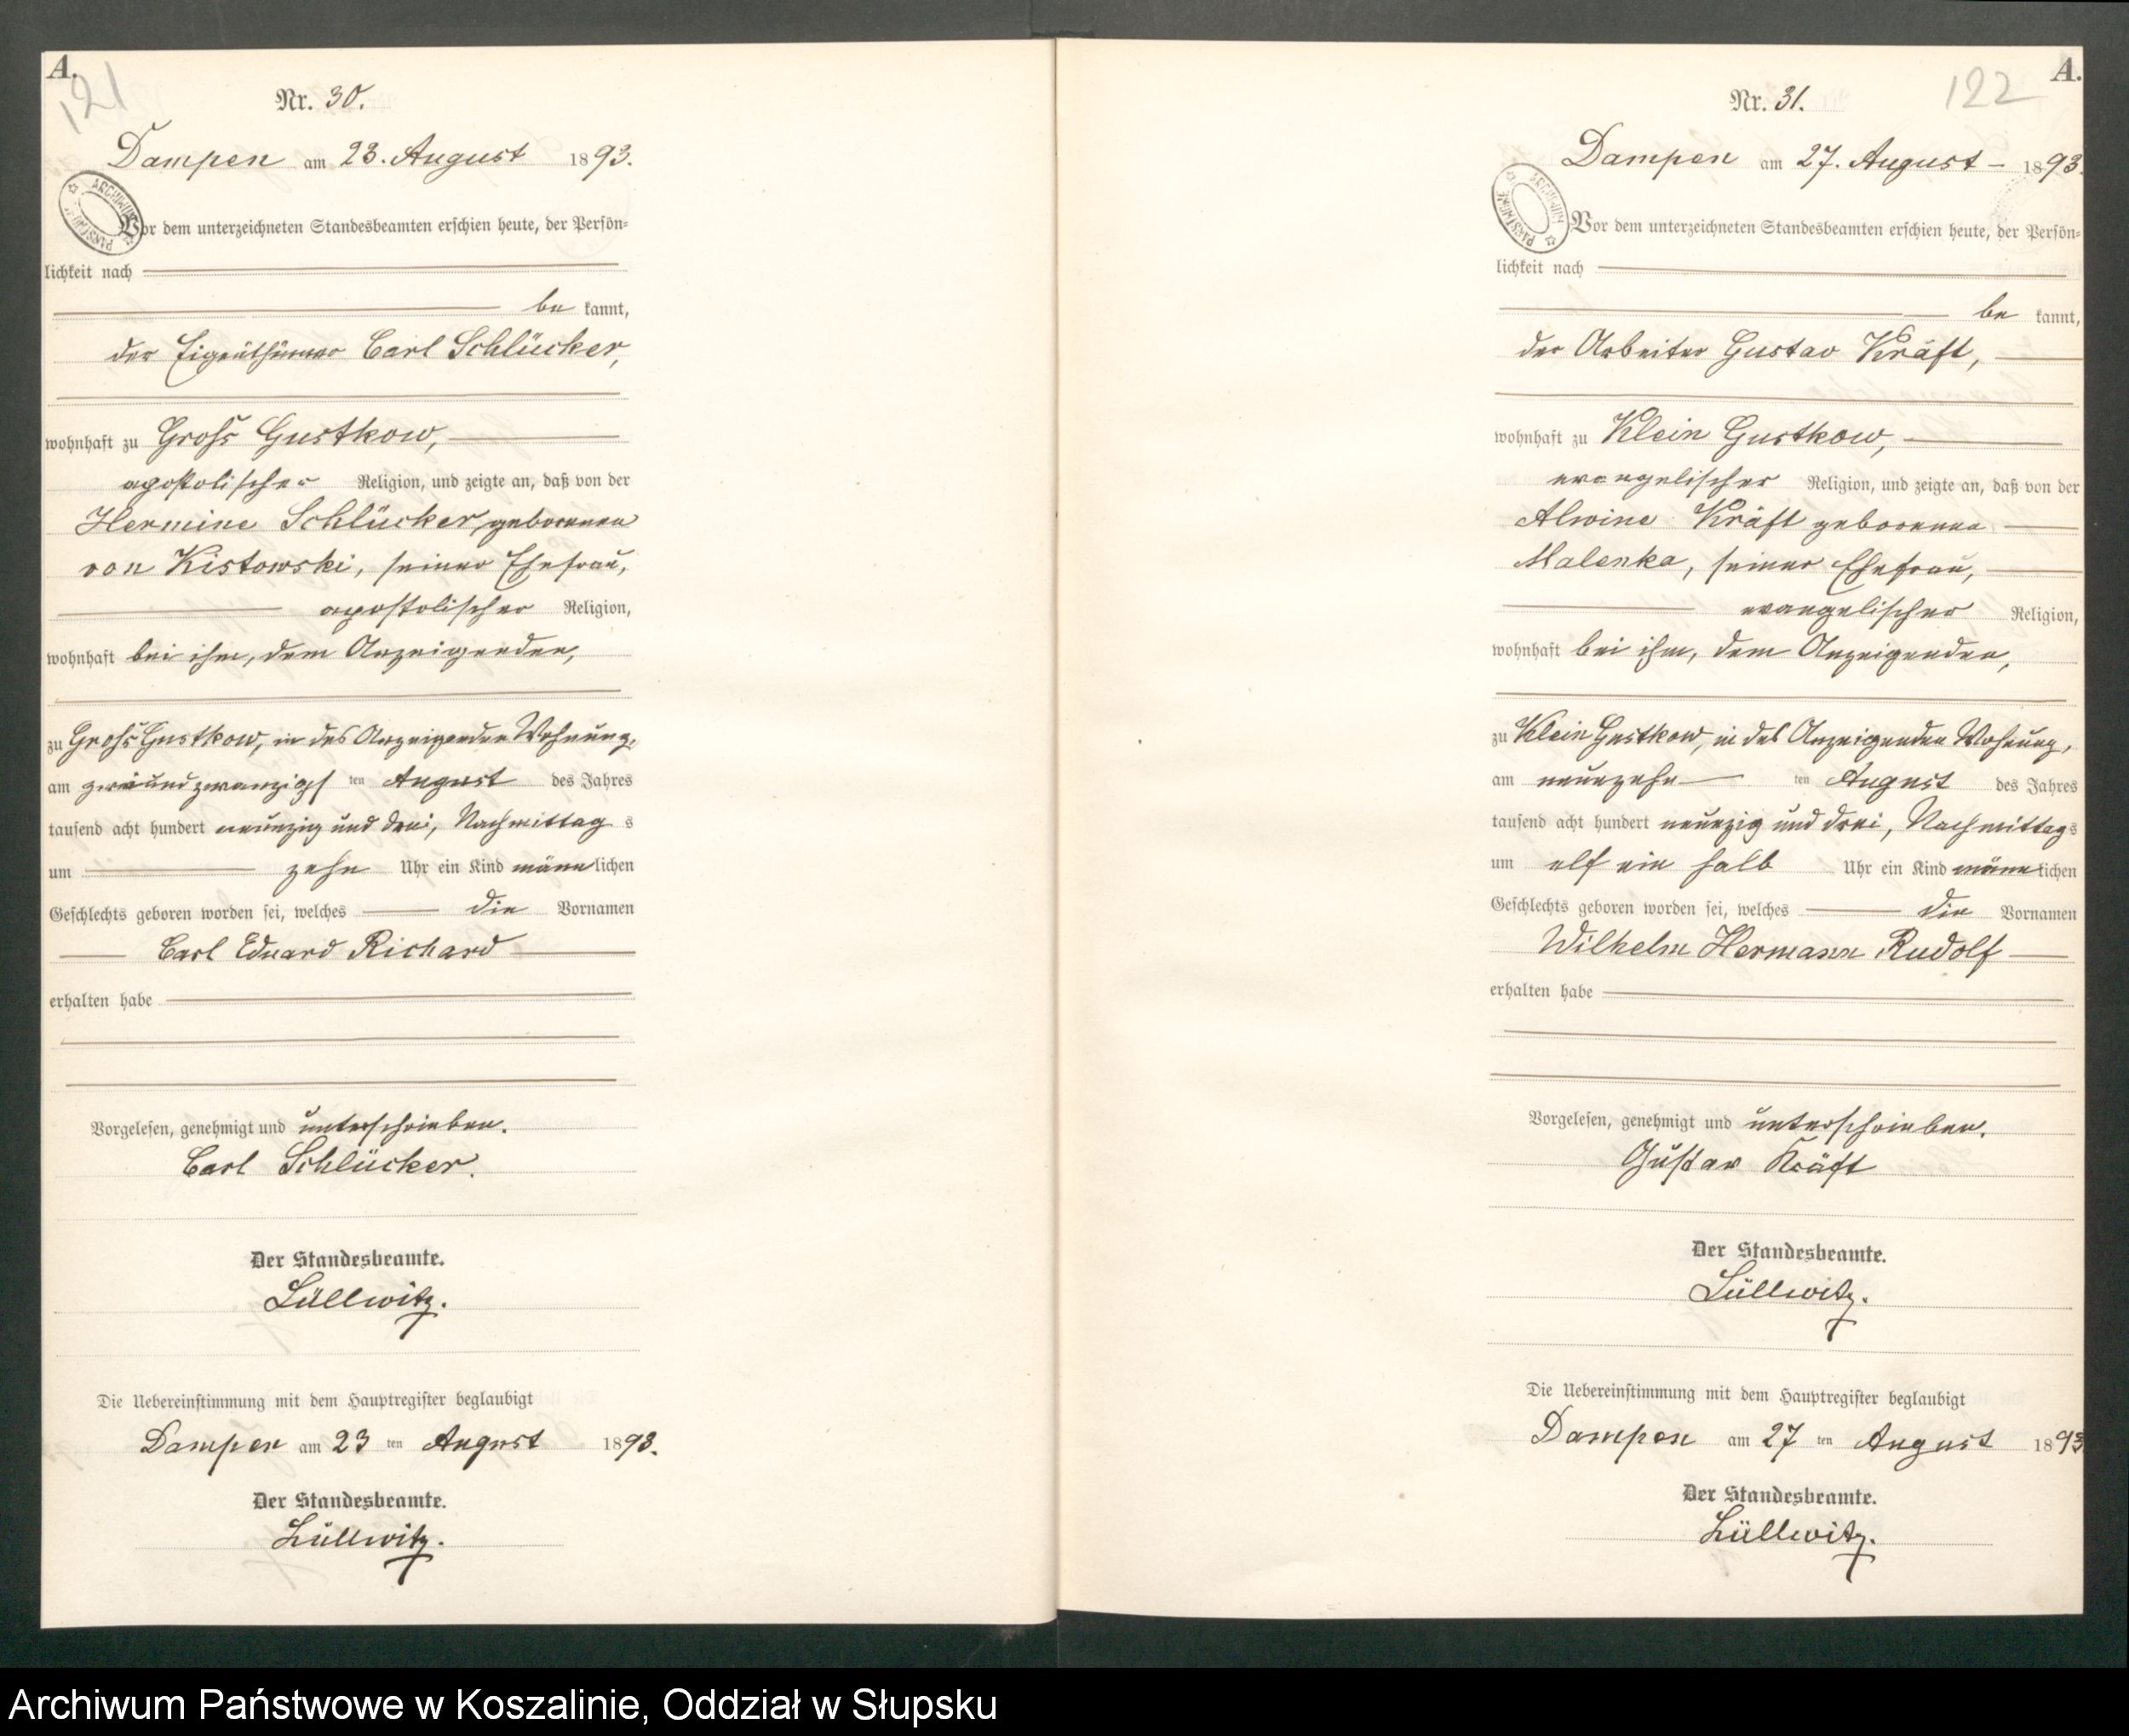 A.
121
Nr. 30.
Dampen am 23. August 1893.
ARCHIWUM PAŃSTWOWE
Vor dem unterzeichneten Standesbeamten erschien heute, der Persön-
lichkeit nach
be kannt,
der Eigenthümer Carl Schlücker,
wohnhaft zu Gross Gustkow,
apostolischer Religion, und zeigte an, daß von der
Hermine Schlücker, geborenen
von Kistowski, seiner Ehefrau,
apostolischer Religion,
wohnhaft bei ihm, dem Anzeigenden,
zu Gross Gustkow, in des Anzeigenden Wohnung,
am zweiundzwanzigs ten August des Jahres
tausend acht hundert neunzig und drei, Nachmittag s
um zehn Uhr ein Kind männ lichen
Geschlechts geboren worden sei, welches die Vornamen
Carl Eduard Richard
erhalten habe
Vorgelesen, genehmigt und unterschrieben.
Carl Schlücker.
Der Standesbeamte.
Lüllwitz.
Die Uebereinstimmung mit dem Hauptregister beglaubigt
Dampen am 23 ten August 1893.
Der Standesbeamte.
Lüllwitz.
A.
122
Nr. 31.
Dampen am 27. August 1893.
ARCHIWUM PAŃSTWOWE
Vor dem unterzeichneten Standesbeamten erschien heute, der Persön-
lichkeit nach
be kannt,
der Arbeiter Gustav Kräft,
wohnhaft zu Klein Gustkow,
evangelischer Religion, und zeigte an, daß von der
Alwine Kräft geborenen
Malenka, seiner Ehefrau,
evangelischer Religion,
wohnhaft bei ihm, dem Anzeigenden,
zu Klein Gustkow, in des Anzeigenden Wohnung,
am neunzehn ten August des Jahres
tausend acht hundert neunzig und drei, Nachmittag s
um elf ein halb Uhr ein Kind männ lichen
Geschlechts geboren worden sei, welches die Vornamen
Wilhelm Hermann Rudolf
erhalten habe
Vorgelesen, genehmigt und unterschrieben.
Gustav Kräft
Der Standesbeamte.
Lüllwitz.
Die Uebereinstimmung mit dem Hauptregister beglaubigt
Dampen am 27 ten August 1893
Der Standesbeamte.
Lüllwitz.
Archiwum Państwowe w Koszalinie, Oddział w Słupsku